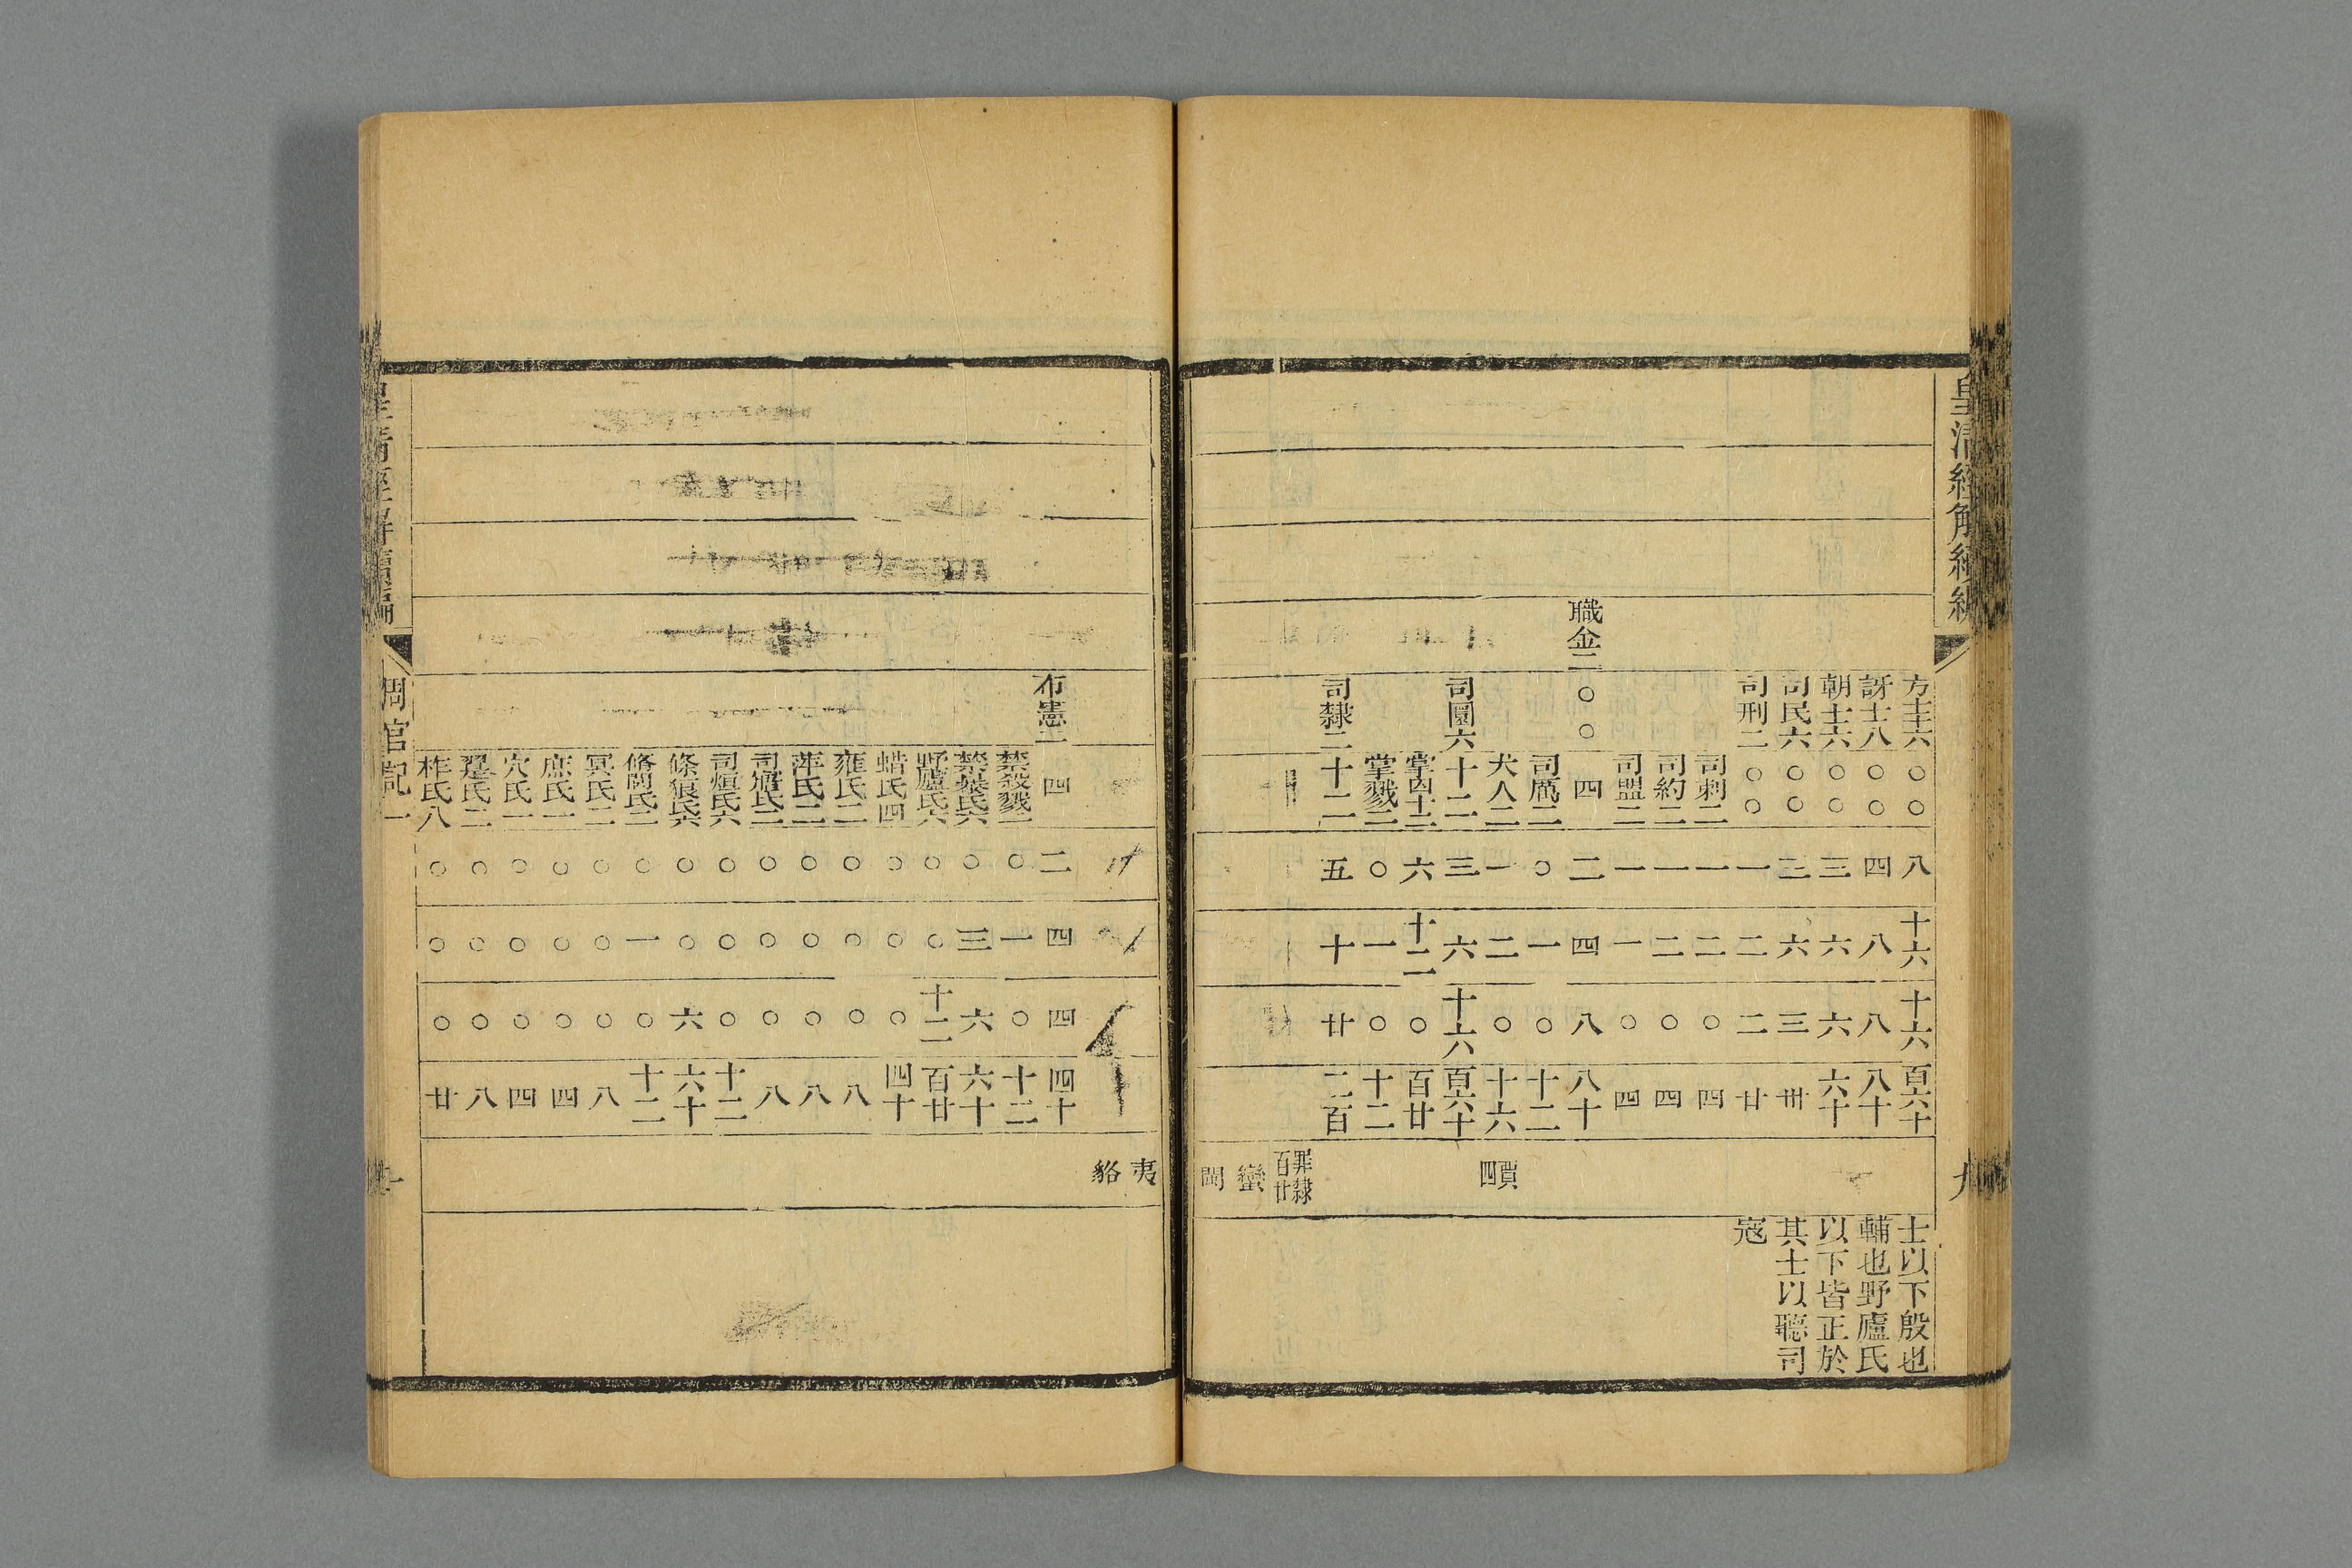 皇清經解續編
九
方士十六○○八十六十六百六十
訝士八○○四八八八十
朝士六○○三六六六十
司民六○○三六三卅
司刑二○○一二二廿
司刺二一二○四
司約二一二○四
司盟二一一○四
職金二○○四二四八八十
司厲二○一○十二
犬人二一二○十六
賈四
司圜六十二三六十六百六十
掌囚十二六十二○百廿
掌戮二○一○十二
司隸二十二五十廿二百
罪隸百廿
蠻
閩
士以下殷也
輔也野廬氏
以下皆正於
其士以聽司
寇
夷
貉
布憲二四二四四四十
禁殺戮二○一○十二
禁暴氏六○三六六十
野廬氏六○○十二百廿
蜡氏四○○○四十
雍氏二○○○八
萍氏二○○○八
司寤氏二○○○八
司烜氏六○○○十二
條狼氏六○○六六十
修閭氏二○一○十二
冥氏二○○○八
庶氏一○○○四
穴氏一○○○四
翨氏二○○○八
柞氏八○○○廿
皇清經解續編
周官記一